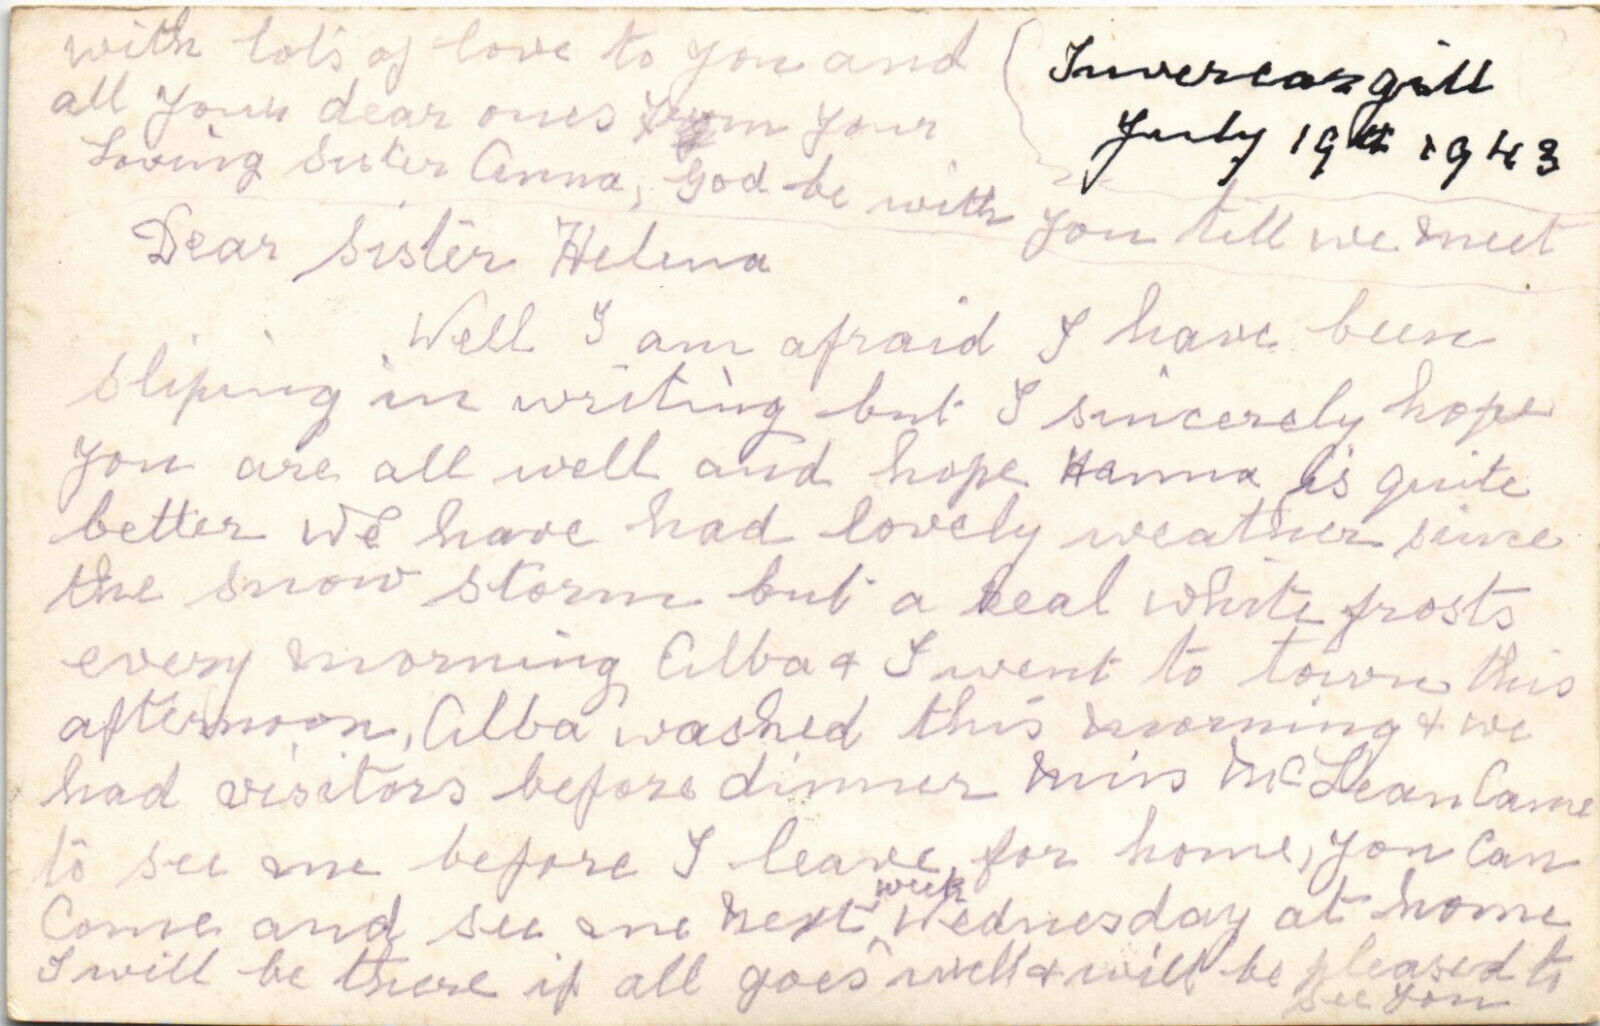 Invercargill
July 19th 1943
Dear Sister Helena
Well I am afraid I have been
sliping in writing but I sincerely hope
you are all well and hope Hanna is quite
better We have had lovely weather since
the snow storm but a real white frosts
every morning Alba & I went to town this
afternoon, Alba washed this morning & we
had visitors before dinner Miss McLean Came
to see me before I leave for home, you Can
Come and see me next week Wednesday at home
I will be there if all goes well & will be pleased to
see you
with lots of love to you and
all your dear ones from your
Loving Sister Anna, God be with
you till we meet